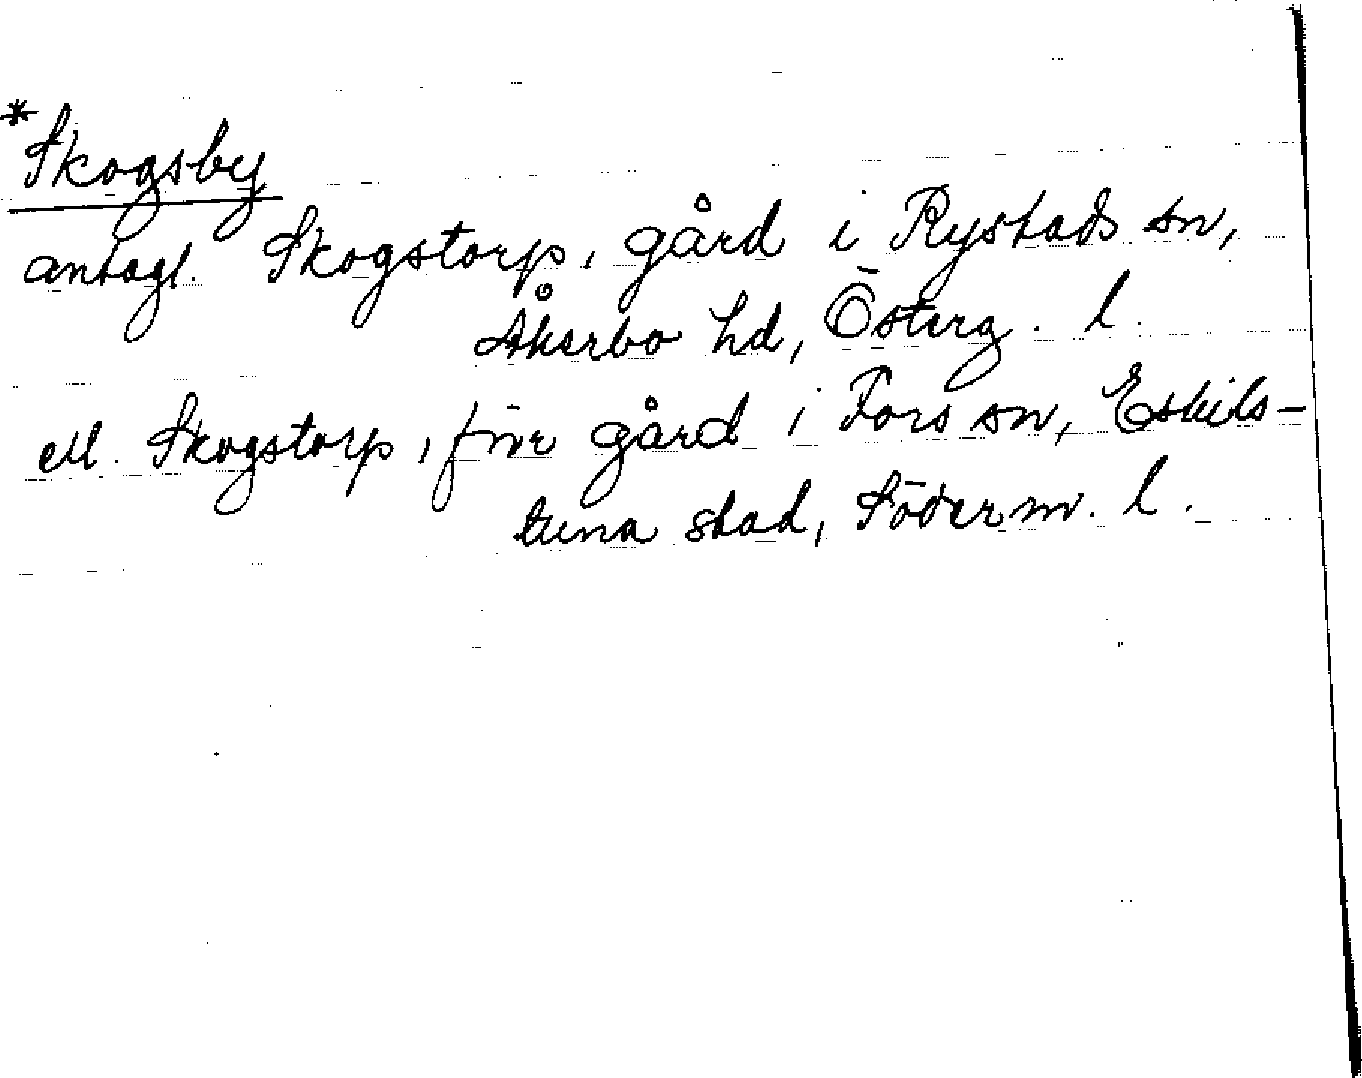 *Skogsby
antagl. Skogstorp, gård i Rystads sn,
Åkerbo hd, Österg. l.
ell. Skogstorp, förr gård i Fors sn, Eskils-
tuna stad, Söderm. l.